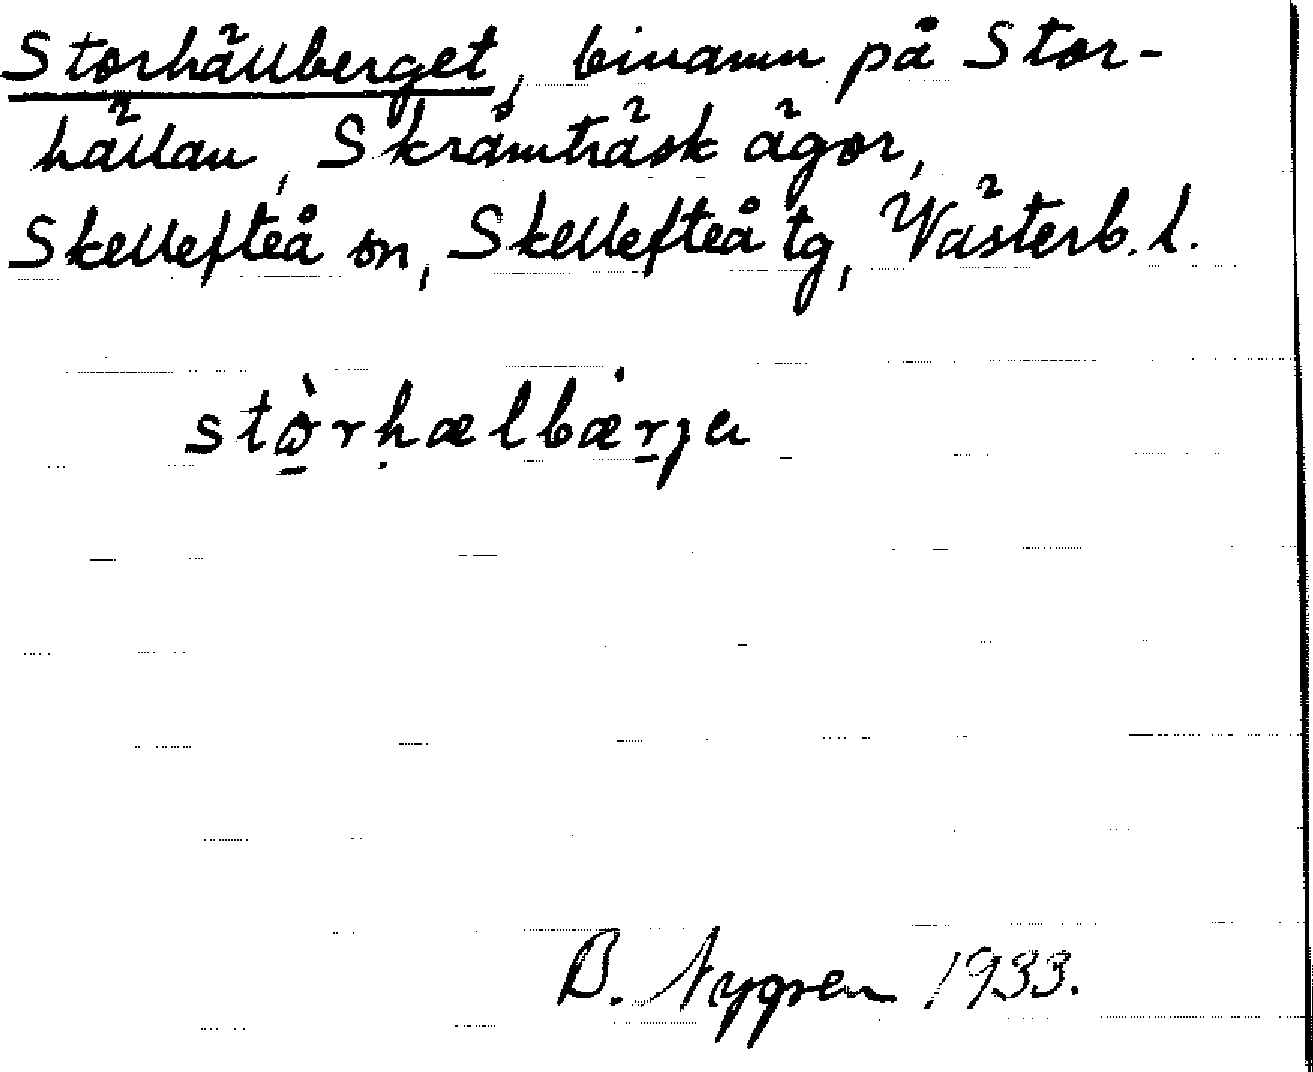 Storhällberget, binamn på Stor-
hällan, Skråmträsk ägor,
Skellefteå sn, Skellefteå tg, Västerb. l.
stòrhælbærja
B. Nygren 1933.